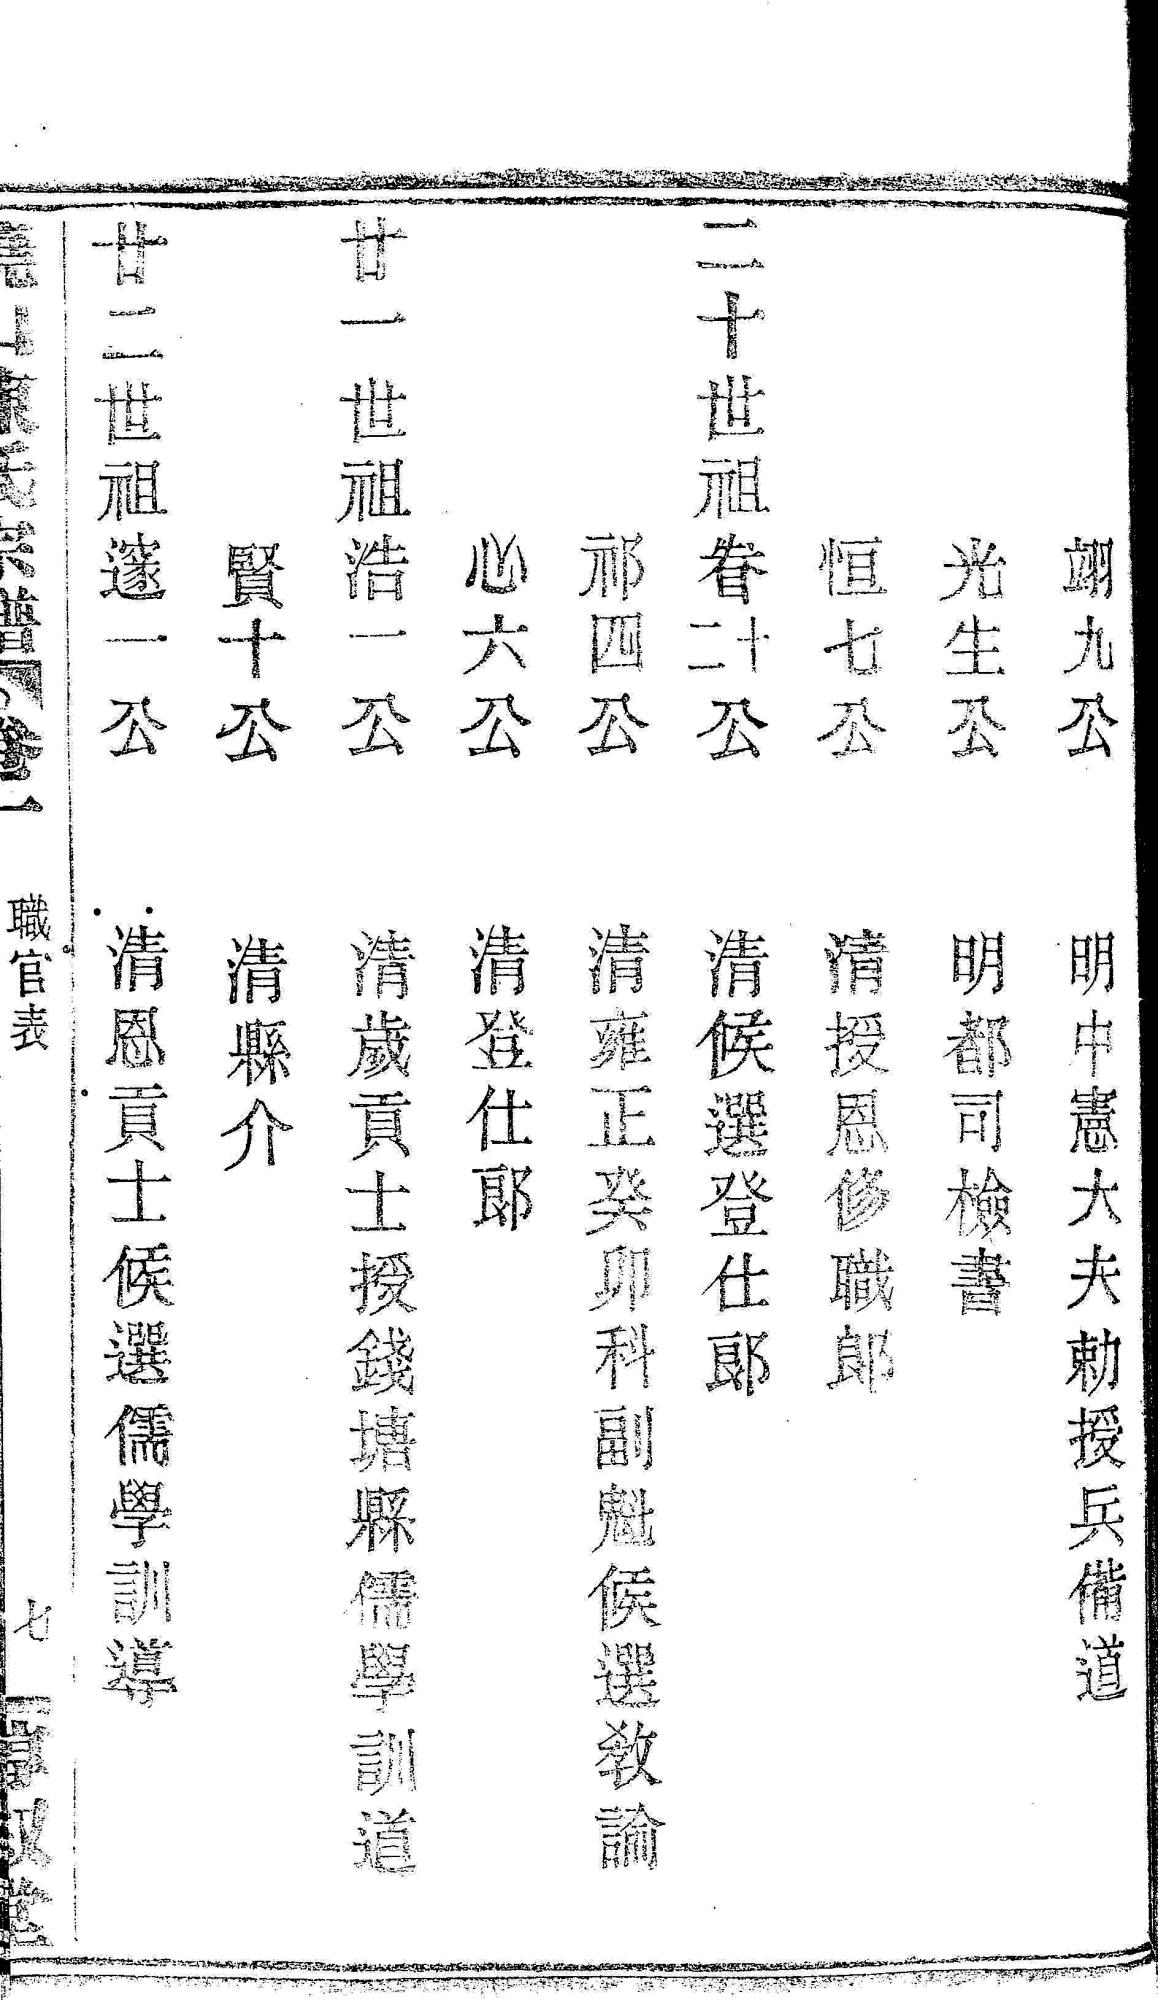 翊九公 明中憲大夫勅授兵備道
光生公 明都司檢書
恒七公 清授恩修職郎
二十世祖眷二十公 清候選登仕郎
祁四公 清雍正癸卯科副魁候選教諭
心六公 清登仕郎
廿一世祖浩一公 清歲貢士授錢塘縣儒學訓道
賢十公 清縣介
廿二世祖邃一公 清恩貢士候選儒學訓導
氏宗譜 卷一 職官表 七